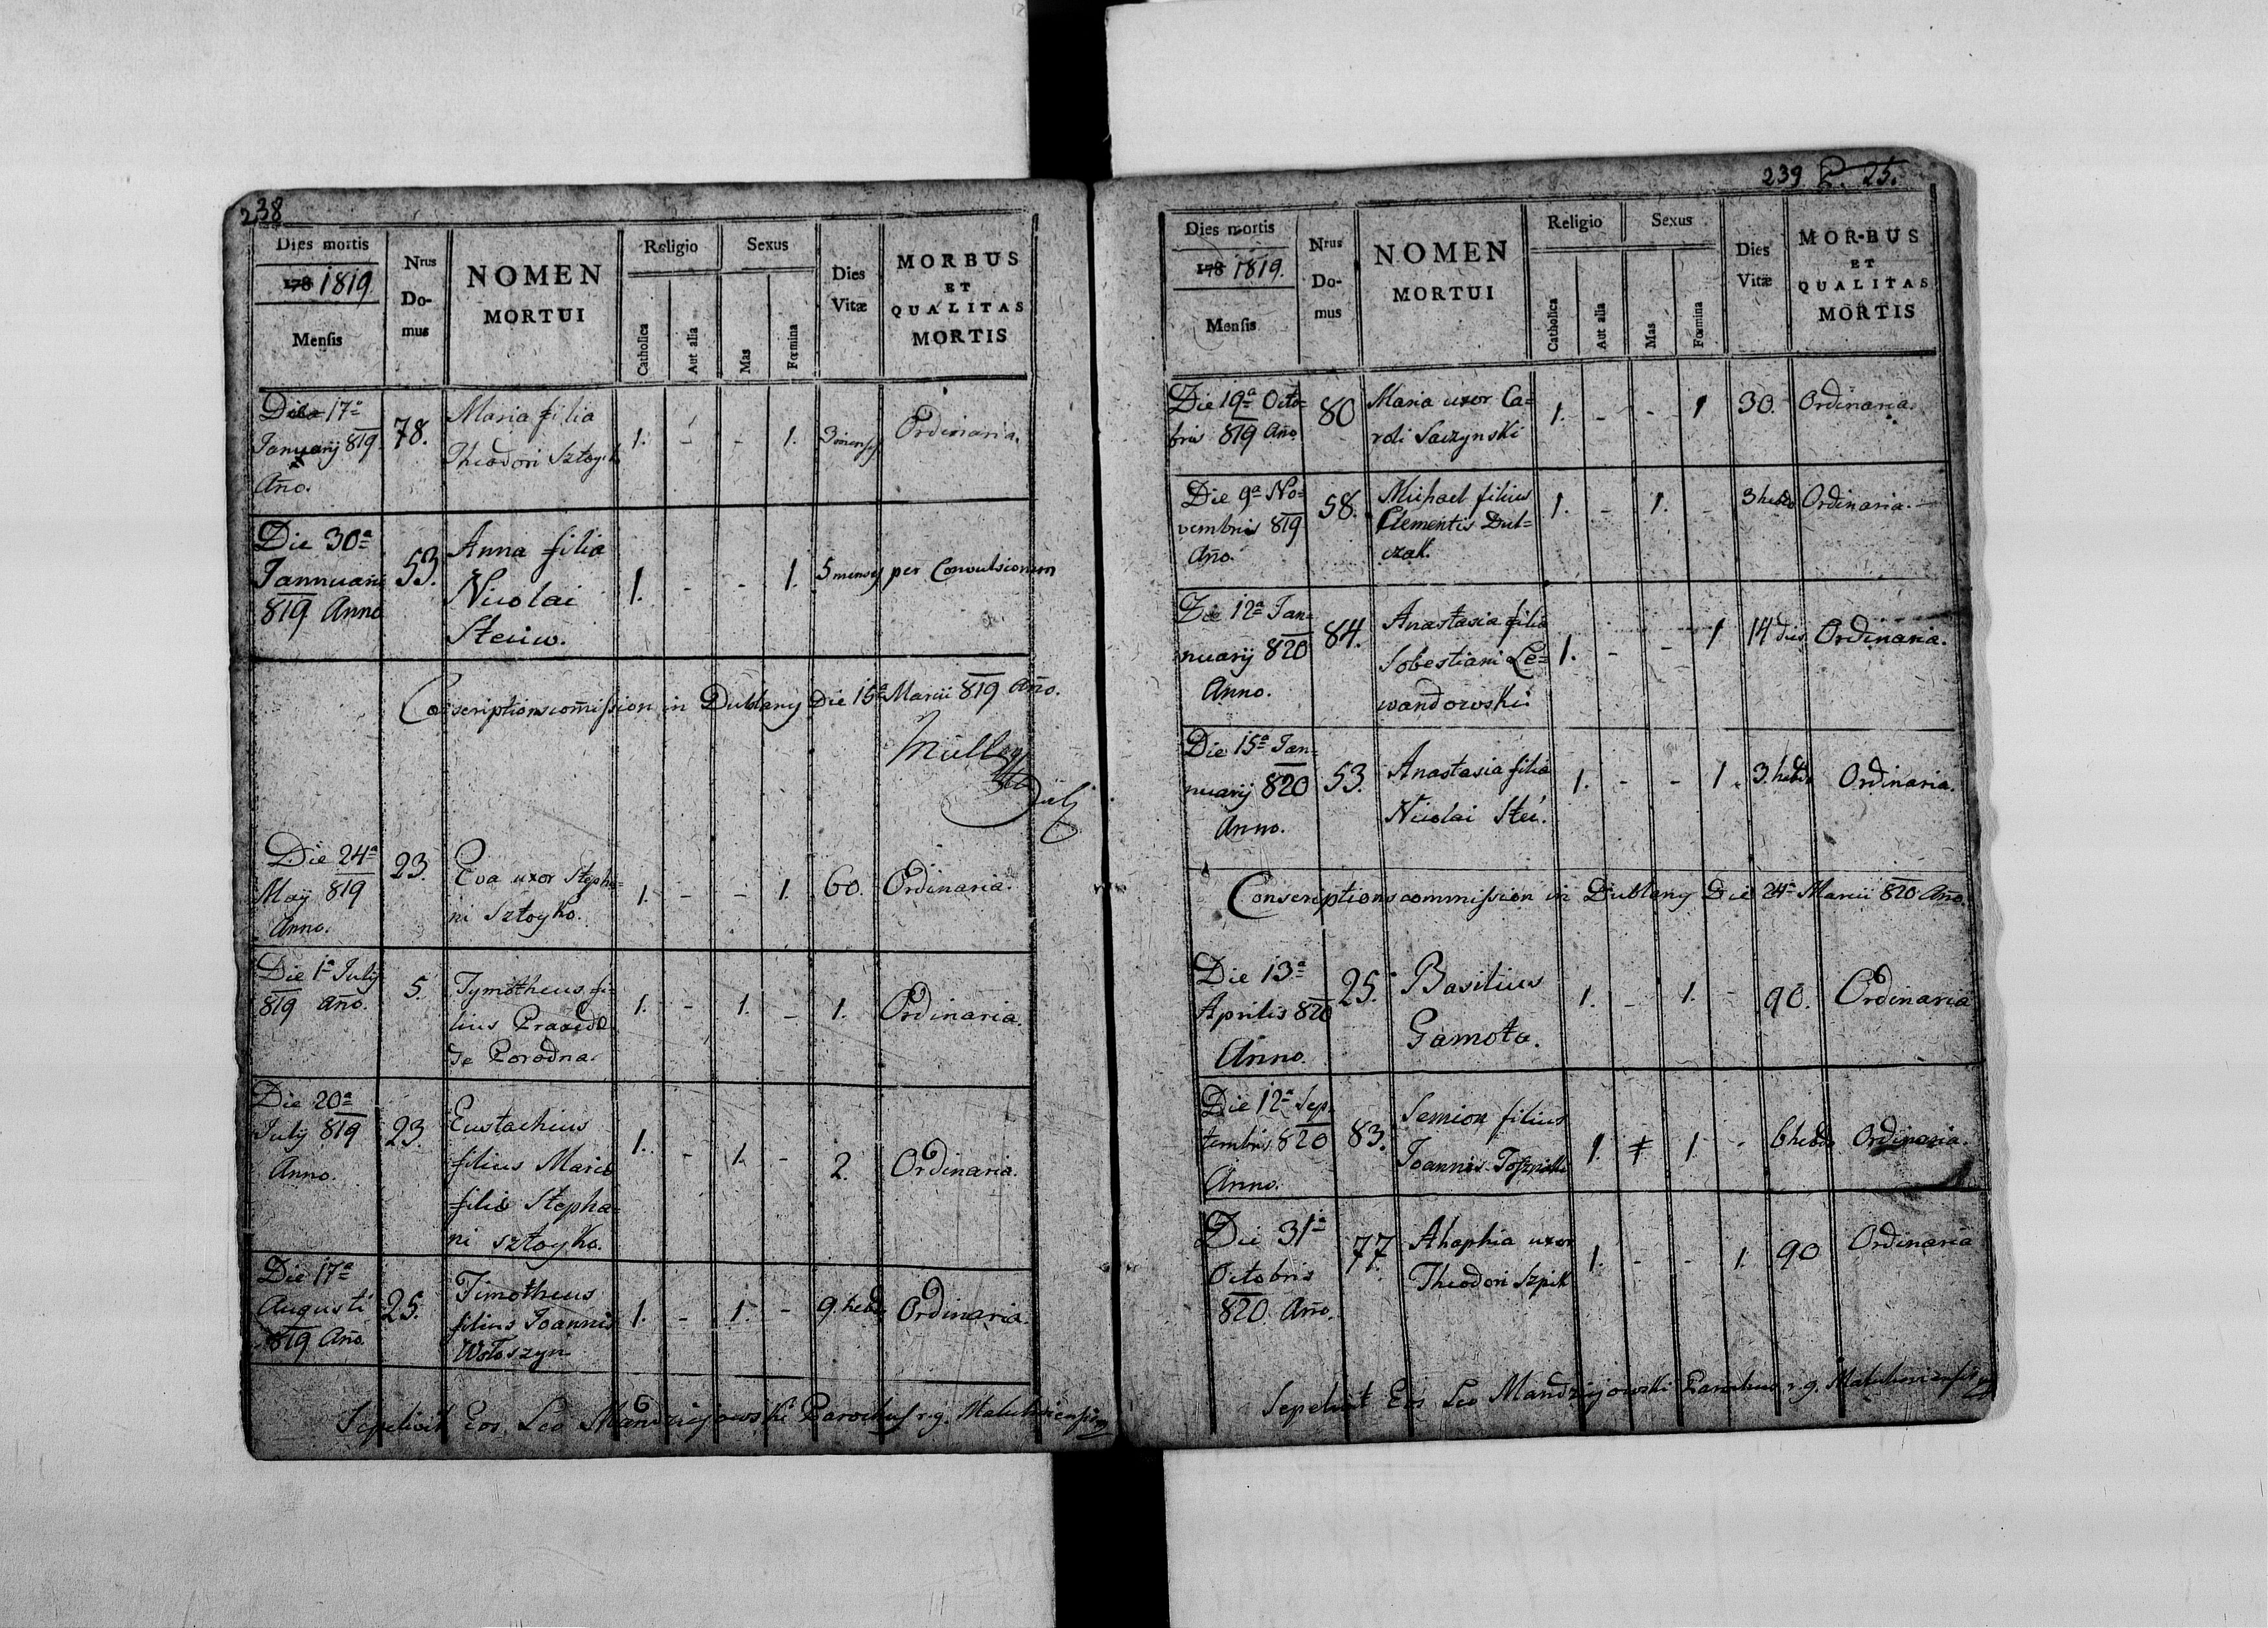 238
Dies mortis
178 1819
Mensis
Nrus
Do-
mus
NOMEN
MORTUI
Religio
Catholica
Aut alia
Sexus
Mas
Fœmina
Dies
Vitæ
MORBUS
ET
QUALITAS
MORTIS
Die 17a
Januarij 819
Año.
78.
Maria filia
Theodori
1. - - 1.
3 mensy
Ordinaria.
Die 30a
Jannuarii
819 Anno
53.
Anna filia
Nicolai
Steciw.
1. - - 1.
5 mensy
per Convulsionem
Conscriptionscom̃ission in Dublany Die 15a Marcii 819 Año.
Die 24a
May 819
Anno.
23.
Eva uxor Stepha-
ni Sztoyko.
1. - - 1.
60.
Ordinaria.
Die 1a July
819 Año.
5.
Tymotheus fi-
lius Praxedæ
de Porodna.
1. - 1. -
1.
Ordinaria.
Die 20a
July 819
Anno.
23.
Eustachius
filius Mariæ
filiæ Stepha-
ni Sztoyko.
1. - 1. -
2.
Ordinaria.
Die 17a
Augusti
819 Año.
25.
Timotheus
filius Joannis
Wołoszyn
1. - 1. -
9. hebd
Ordinaria.
Sepelivit Eos Leo Mandziejowski Parochus r. g.
239 P. 25.
Dies mortis
178 1819.
Mensis
Nrus
Do-
mus
NOMEN
MORTUI
Religio
Catholica
Aut alia
Sexus
Mas
Fœmina
Dies
Vitæ
MORBUS
ET
QUALITAS
MORTIS
Die 19a Octo-
bris 819 Año
80
Maria uxor Ca-
roli Saczynski
1. - - 1
30.
Ordinaria.
Die 9a No-
vembris 819
Año.
58.
Michael filius
Clementis Dul-
czak.
1. - 1. -
3 hebd
Ordinaria.
Die 12a Jan-
nuarij 820
Anno.
84.
Anastasia filia
Sobestiani Le-
wandowski.
1. - - 1
14 dies
Ordinaria.
Die 15a Jan-
nuarij 820
Anno.
53.
Anastasia filia
Nicolai Steć.
1. - - 1.
3. hebd
Ordinaria.
Conscriptionscommission in Dublany Die 24a Marcii 820 Año.
Die 13a
Aprilis 820
Anno.
25.
Basilius
Gamota.
1. - 1. -
90.
Ordinaria
Die 12a Sep-
tembris 820
Anno.
83.
Semion filius
Joannis
1. 1. -
6 hebd
Ordinaria.
Die 31a
Octobris
820 Año.
77.
Ahaphia uxor
Theodori Szpik
1. - - 1.
90
Ordinaria
Sepelivit Eos Leo Mandziejowski Parochus r. g.